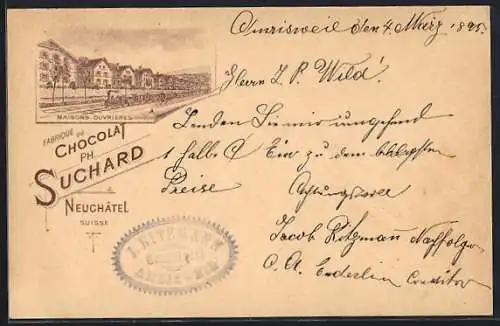 MAISONS OUVRIÈRES
FABRIQUE DE
CHOCOLAT
PH.
SUCHARD
NEUCHÂTEL
SUISSE
Amrisweil den 4. März 1895.
Herrn Z. P. Wild!
Senden Sie mir umgehend
1 halbe
zu dem
Preise
Achtungsvoll
Jacob Ritzmann Nachfolger
C. A. Enderlin Conditor
J. RITZMANN